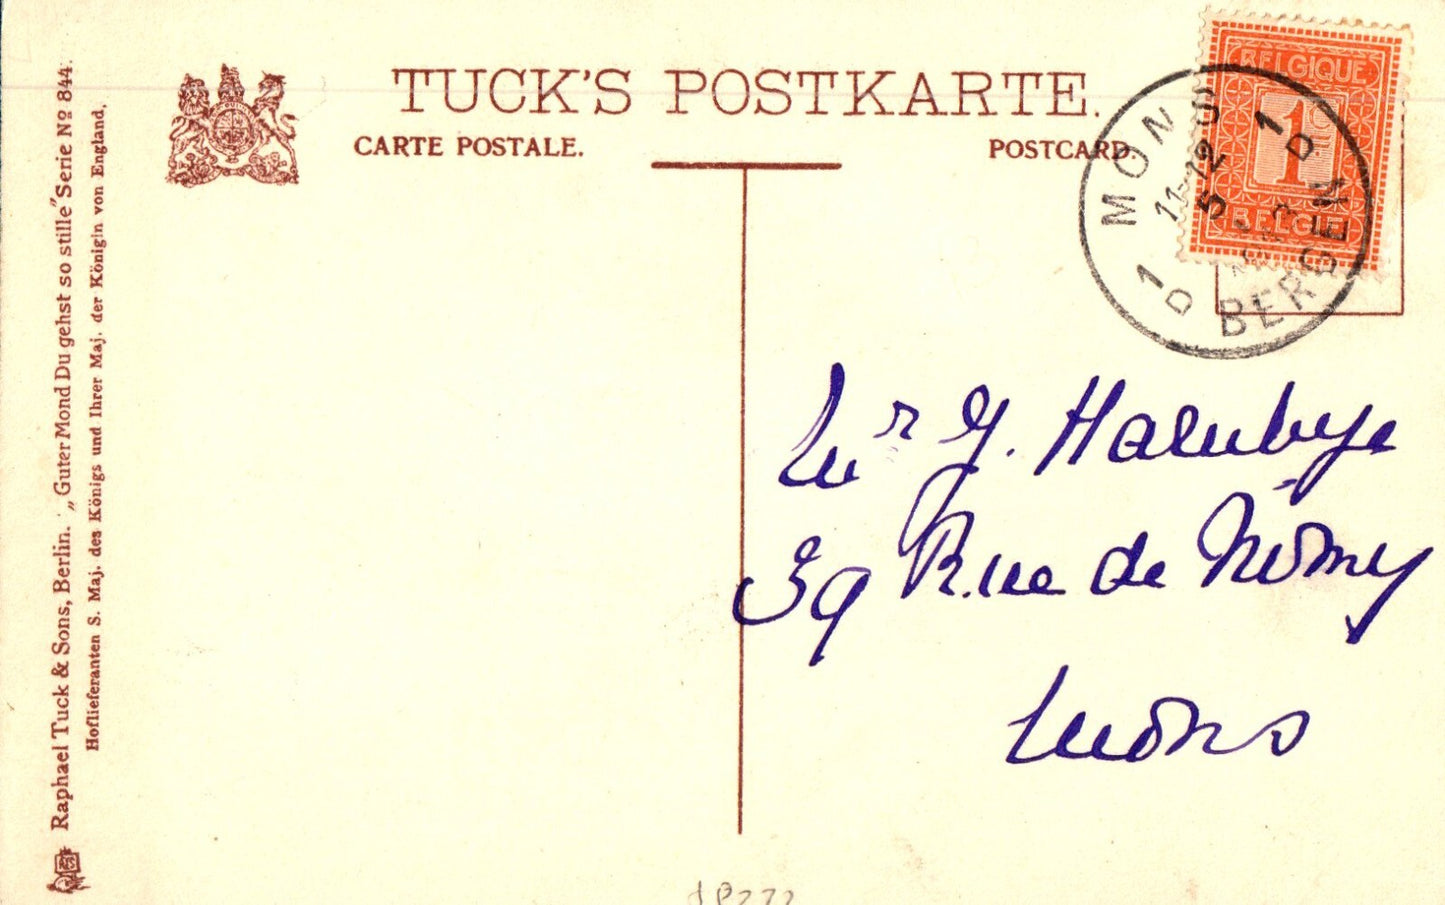 TUCK'S POSTKARTE.
CARTE POSTALE.
POSTCARD.
Raphael Tuck & Sons, Berlin. „Guter Mond Du gehst so stille" Serie No 844.
Hoflieferanten S. Maj. des Königs und Ihrer Maj. der Königin von England.
BELGIQUE
1c
BELGIË
MONS
11-12
5
1D
1D
BERGEN
Mr G. Halubye
39 Rue de Nimy
Mons